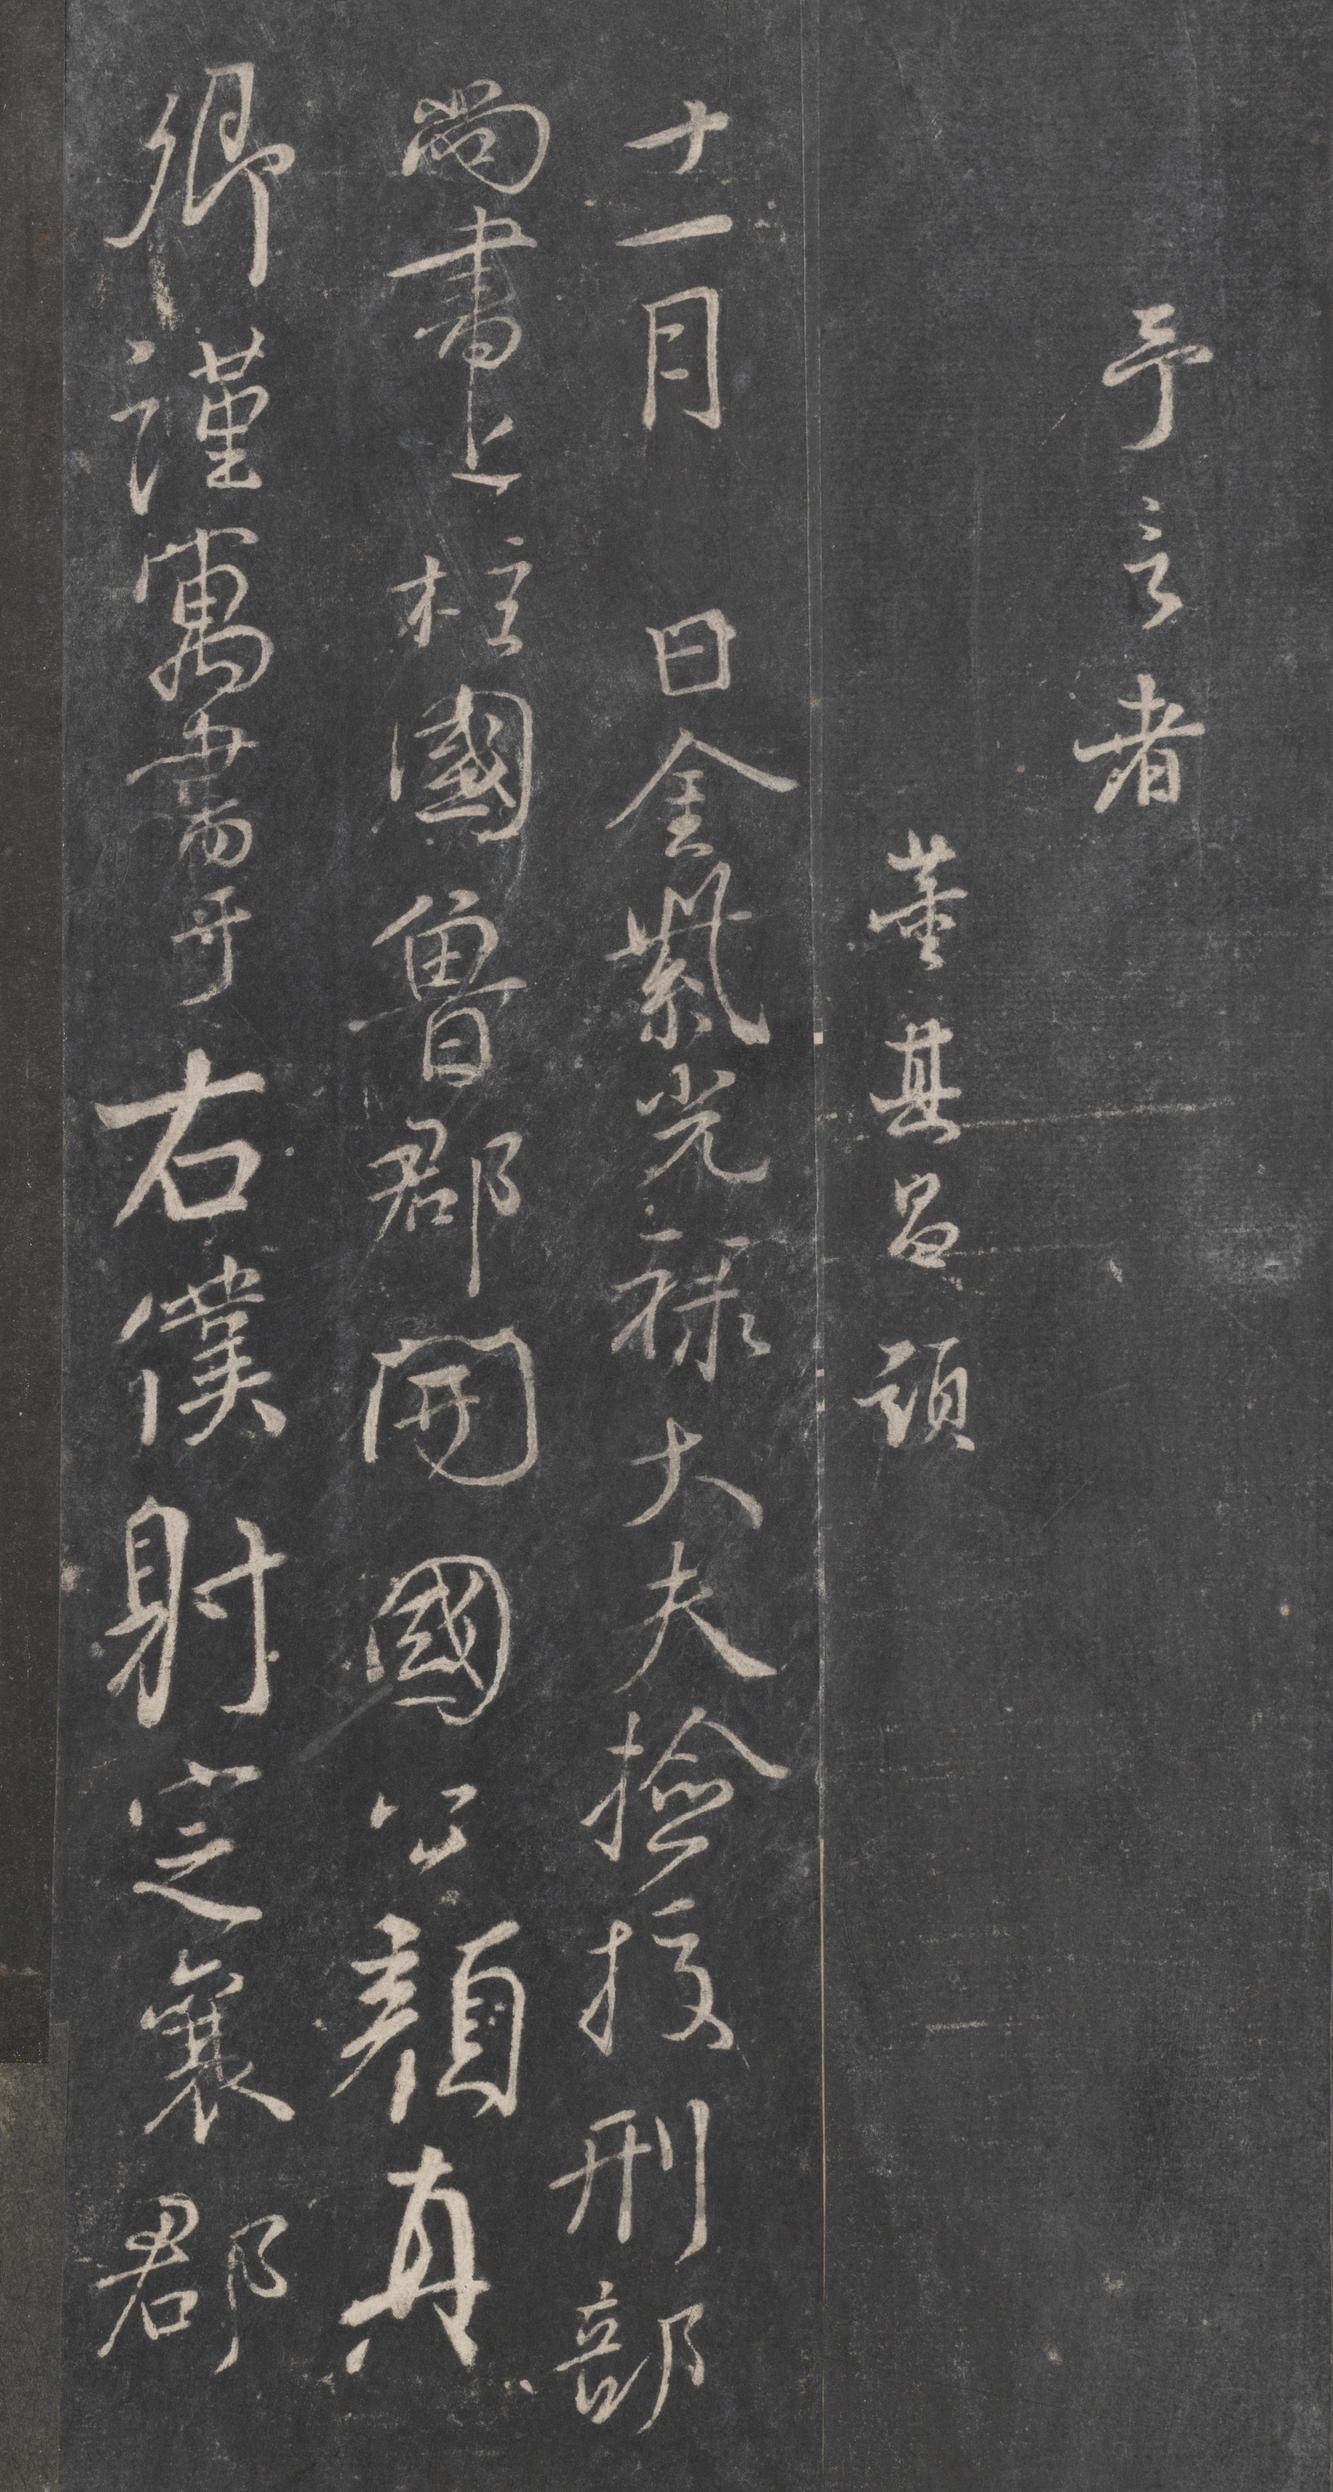 予言者
董其昌頭
十一月 日金紫光祿大夫撿挍刑部
尚書上柱國魯郡開國公顏真
卿謹寓書于右僕射定襄郡